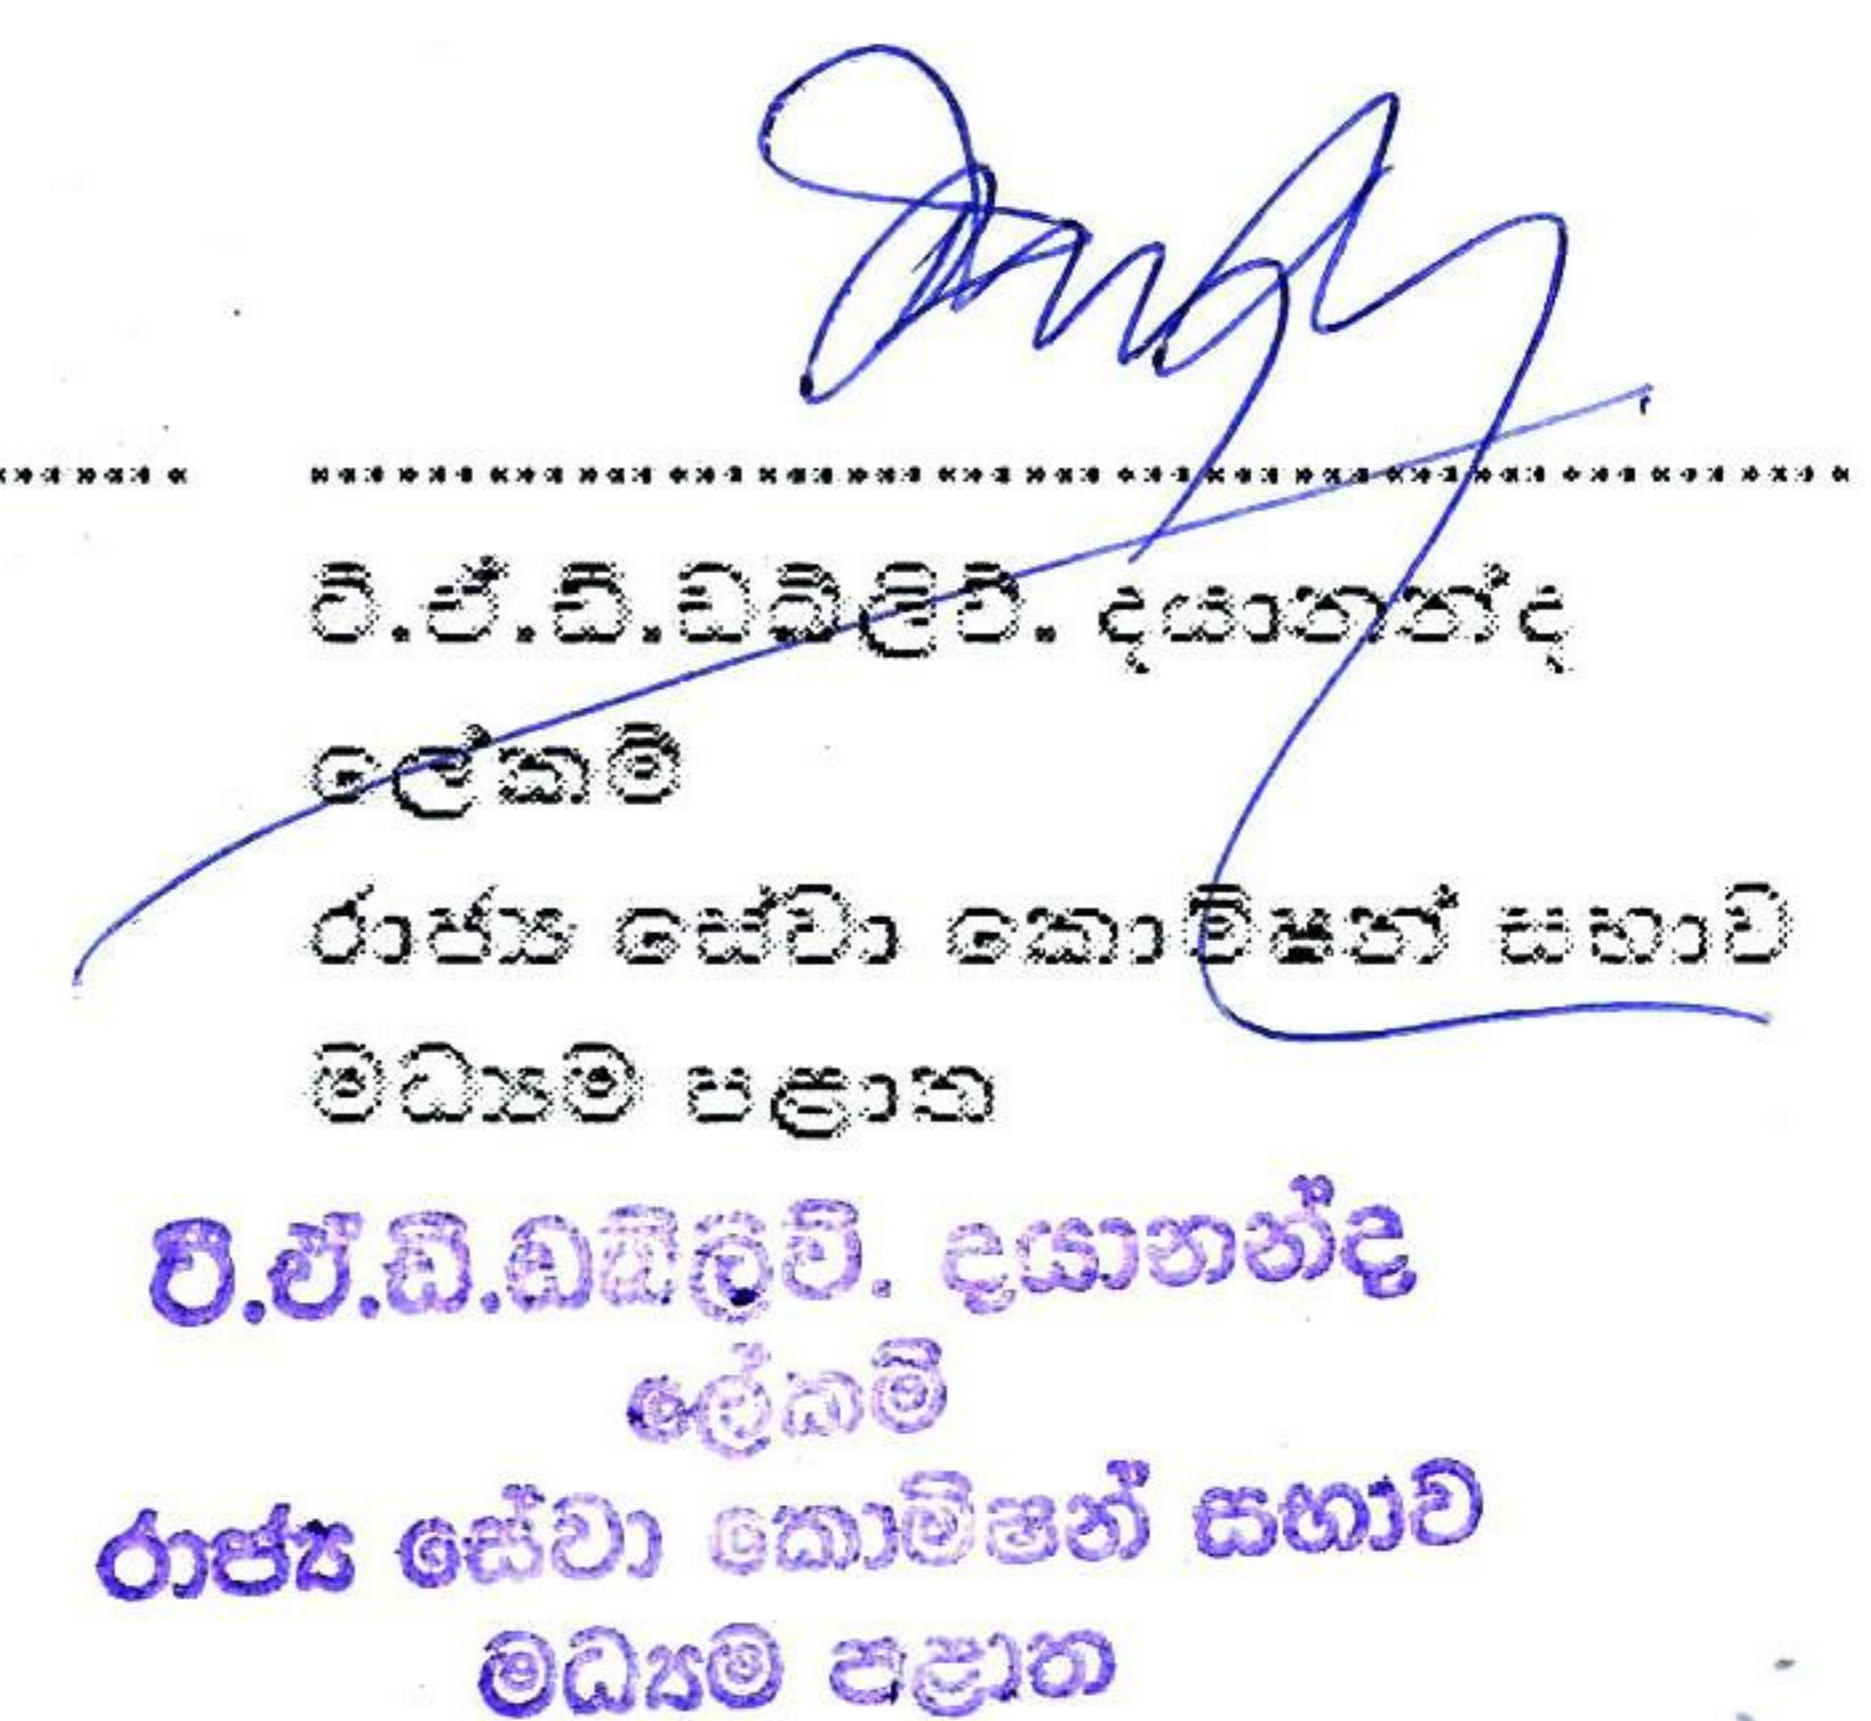 ටී.ඒ.ඩී.ඩබ්ලිව්. දයානන්ද
ලේකම්
රාජ්‍ය සේවා කොමිෂන් සභාව
මධ්‍යම පළාත
ටී.ඒ.ඩී.ඩබ්ලිව්. දයානන්ද
ලේකම්
රාජ්‍ය සේවා කොමිෂන් සභාව
මධ්‍යම පළාත